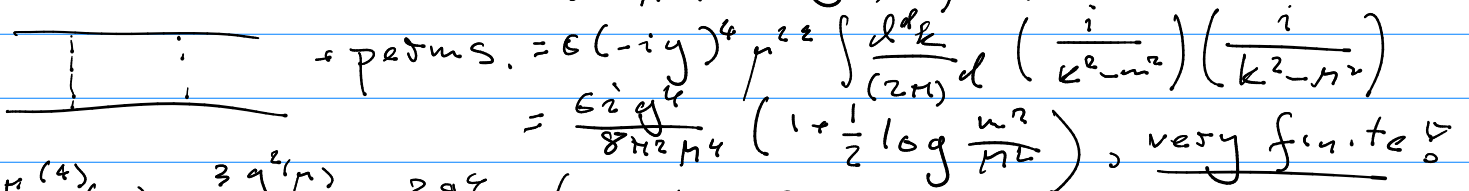 + perms. = 6(-iy)^4 μ^{2ε} ∫ d^dk/(2π)^d (i/(k^2-m^2)) (i/(k^2-μ^2))
= 6iy^4/(8π^2μ^4) (1+1/2 log m^2/μ^2), very finite!
(4) 3g^2(μ)